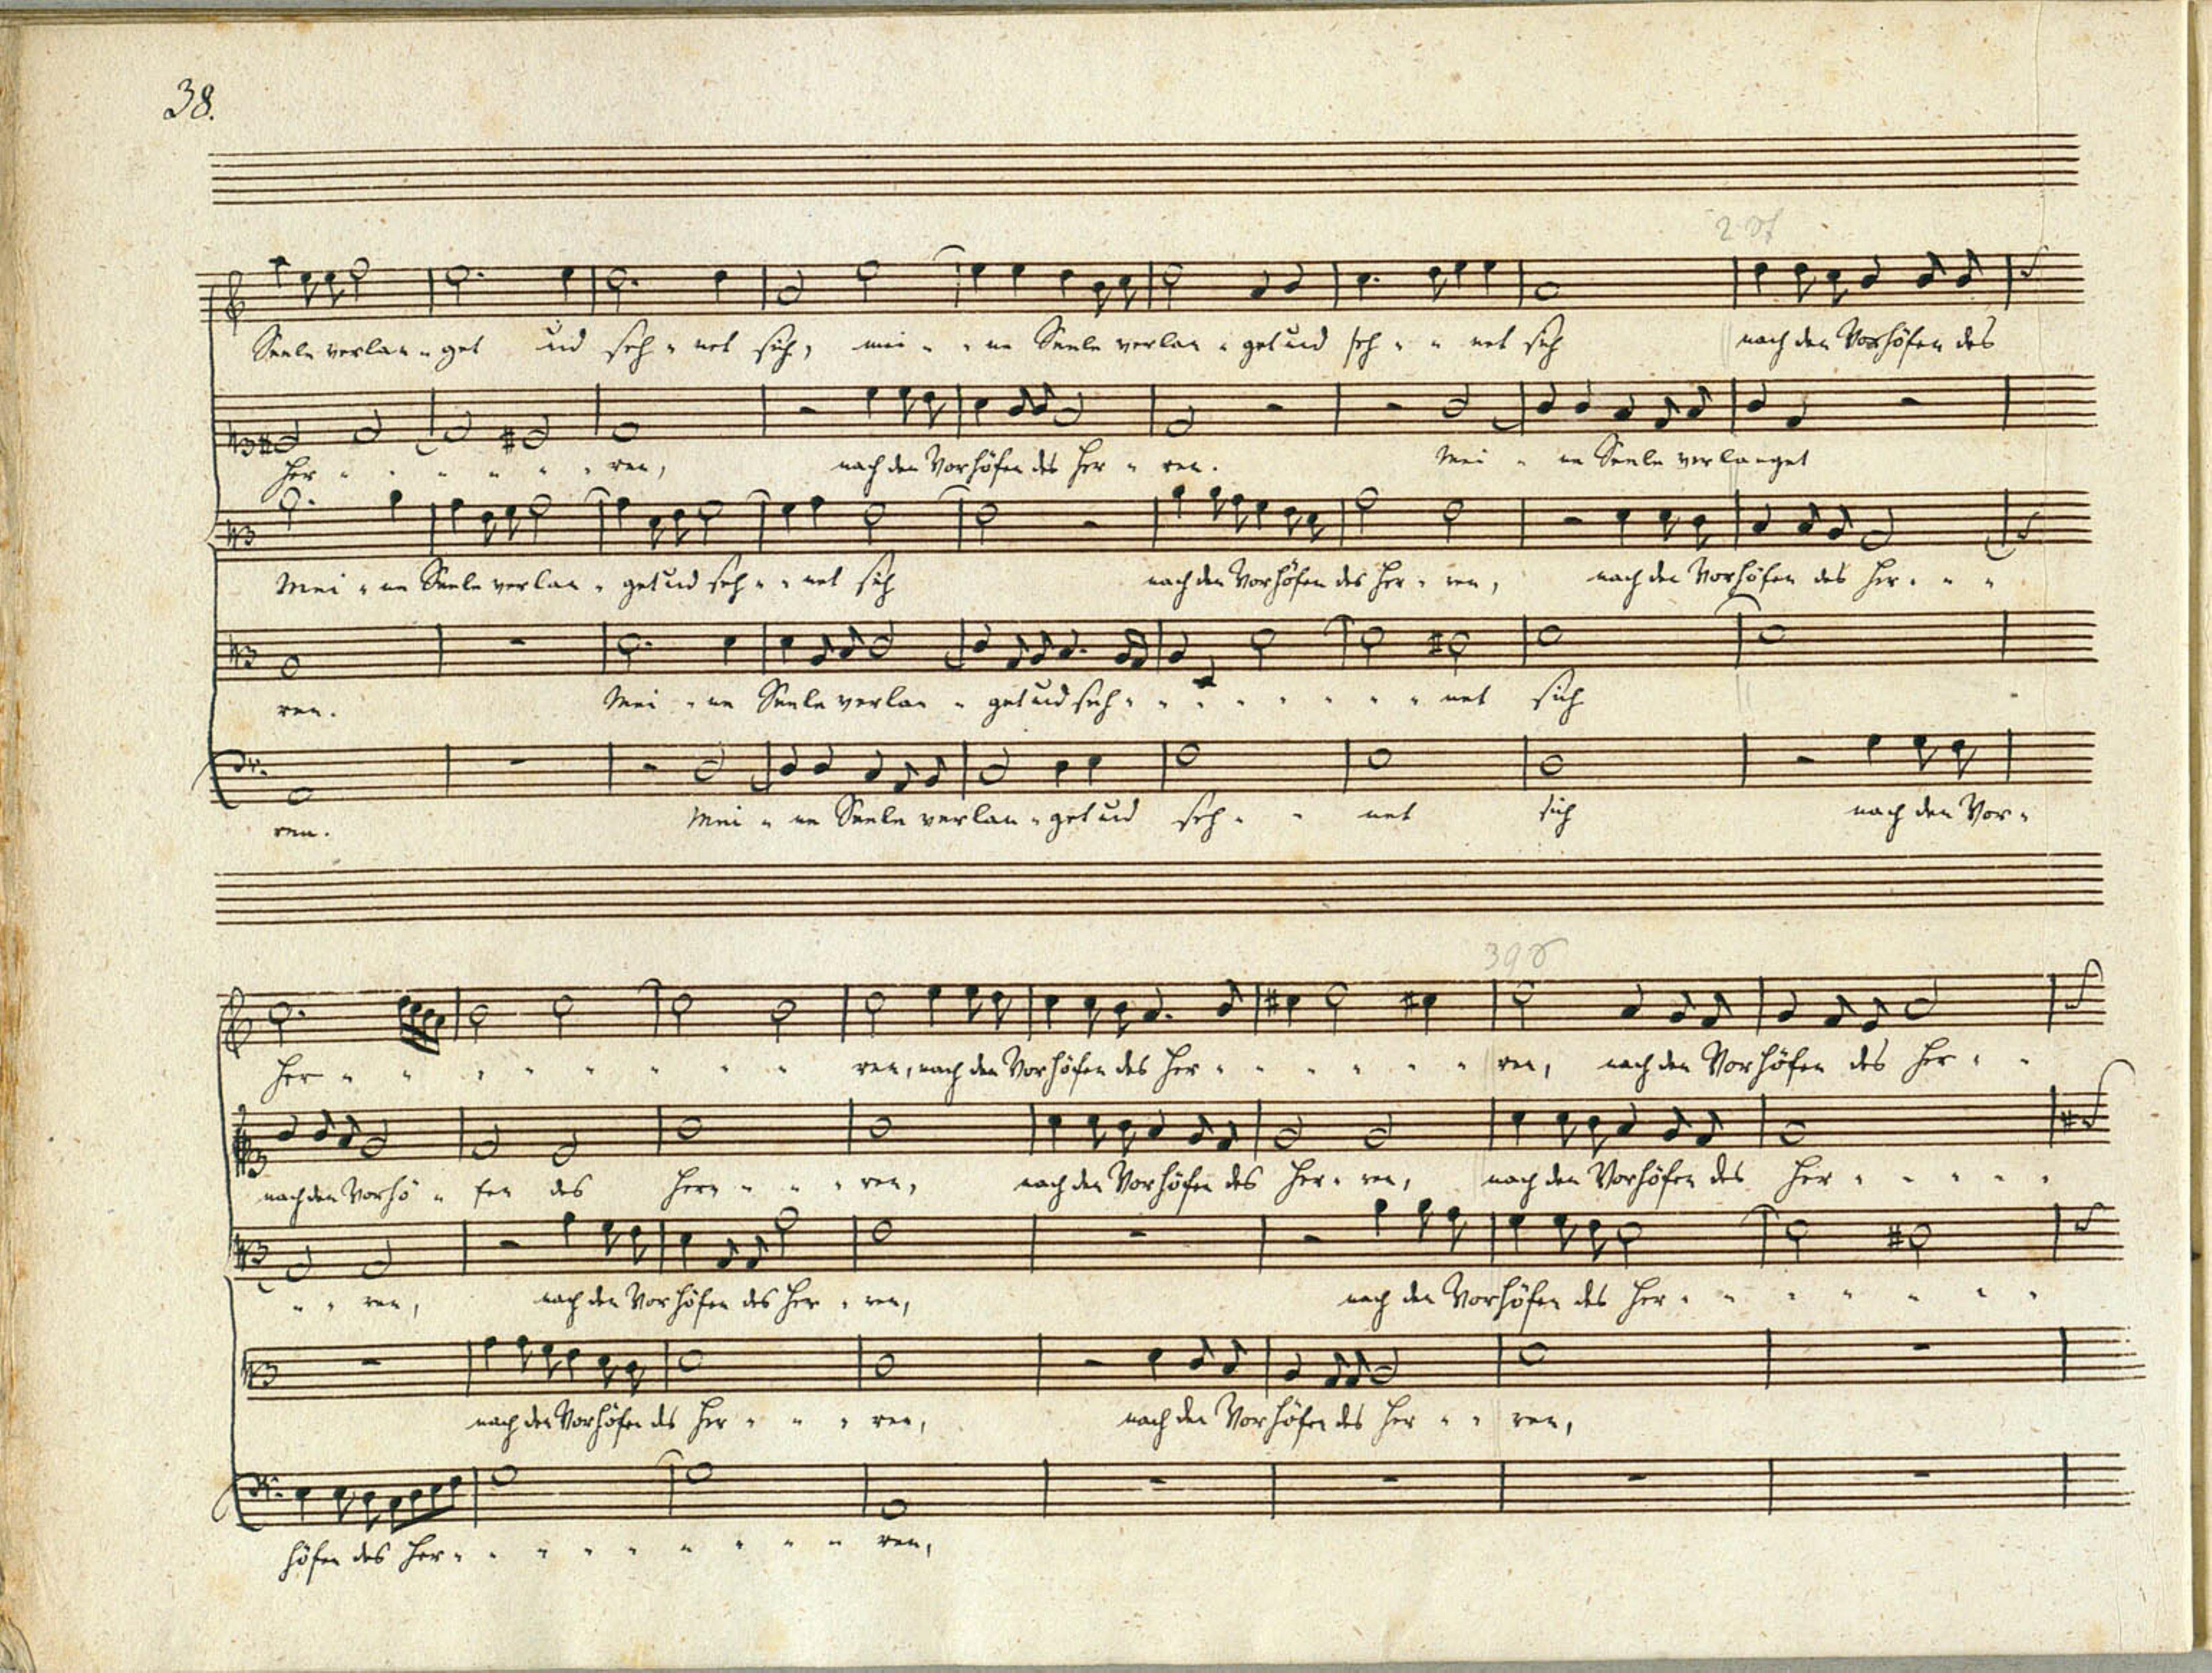 38.
Seele verlan - get und seh - net sich, mei - - ne Seele verlan - get und seh - - net sich nach den Vorhöfen des
Her - - - - - - ren, nach den Vorhöfen des Her - ren. Mei - ne Seele verlanget
Mei - ne Seele verlan - get und seh - - net sich nach den Vorhöfen des Her - ren, nach den Vorhöfen des Her - - -
ren. Mei - ne Seele verlan - get und seh - - - - - - - - net sich
ren. Mei - ne Seele verlan - get und seh - - net sich nach den Vor -
Her - - - - - - - - ren, nach den Vorhöfen des Her - - - - - - ren, nach den Vorhöfen des Her - -
nach den Vorhö - fen des Her - - - ren, nach den Vorhöfen des Her - ren, nach den Vorhöfen des Her - - - - -
- - ren, nach den Vorhöfen des Her - ren, nach den Vorhöfen des Her - - - - - - -
nach den Vorhöfen des Her - - - ren, nach den Vorhöfen des Her - - ren,
höfen des Her - - - - - - - - - ren,